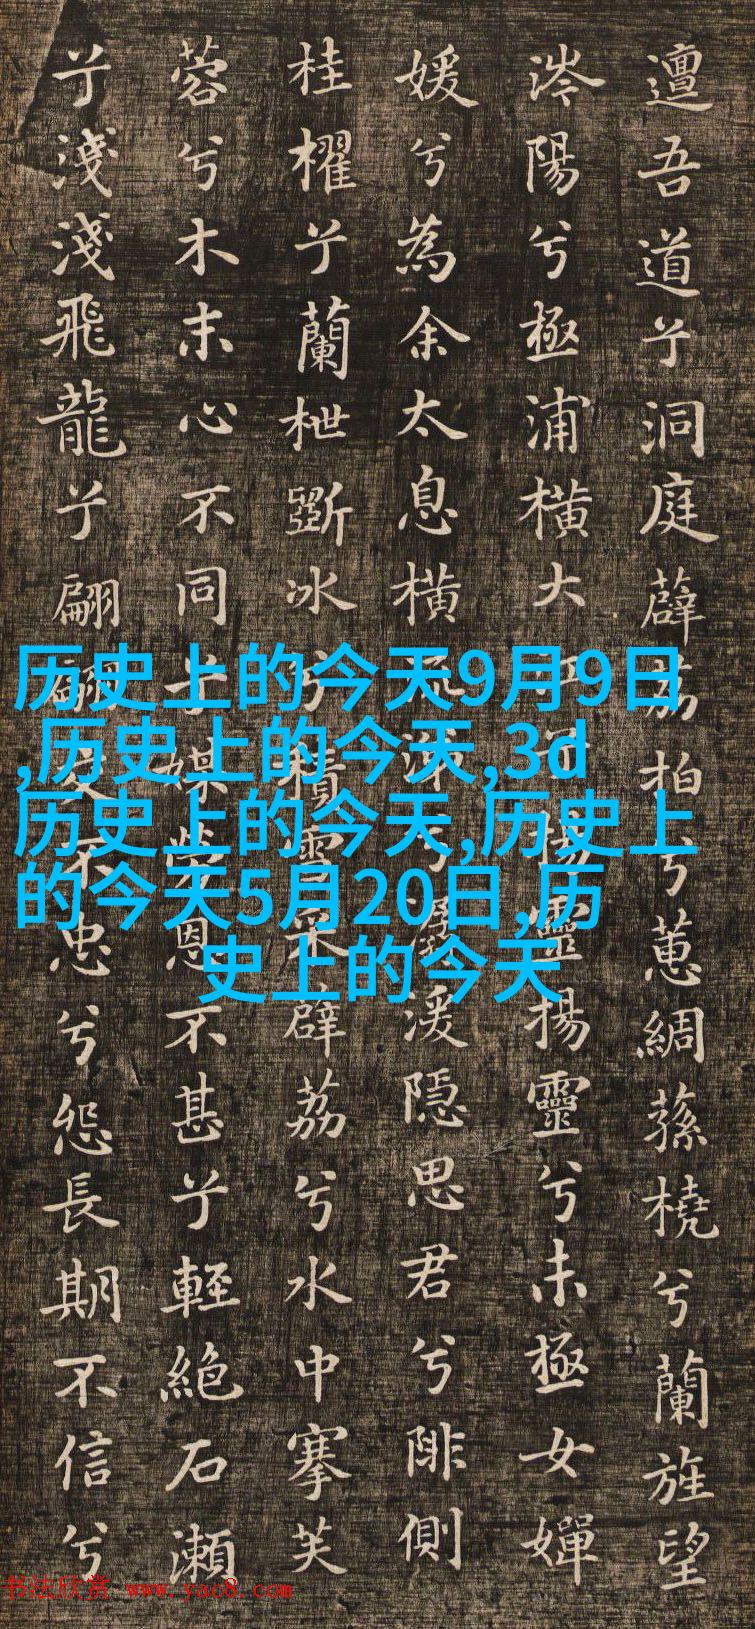 邅吾道兮洞庭薜荔拍兮蕙綢蓀橈兮蘭旌望
涔陽兮極浦橫大江兮揚靈揚靈兮未極女嬋
媛兮為余太息橫流涕兮潺湲隱思君兮陫側
桂櫂兮蘭枻斲冰兮積雪采薜荔兮水中搴芙
蓉兮木末心不同兮媒勞恩不甚兮輕絶石瀨
兮淺淺飛龍兮翩翩交不忠兮怨長期不信兮
历史上的今天9月9日
,历史上的今天,3d
历史上的今天,历史上
的今天5月20日,历
史上的今天
书法欣赏 www.yac8.com